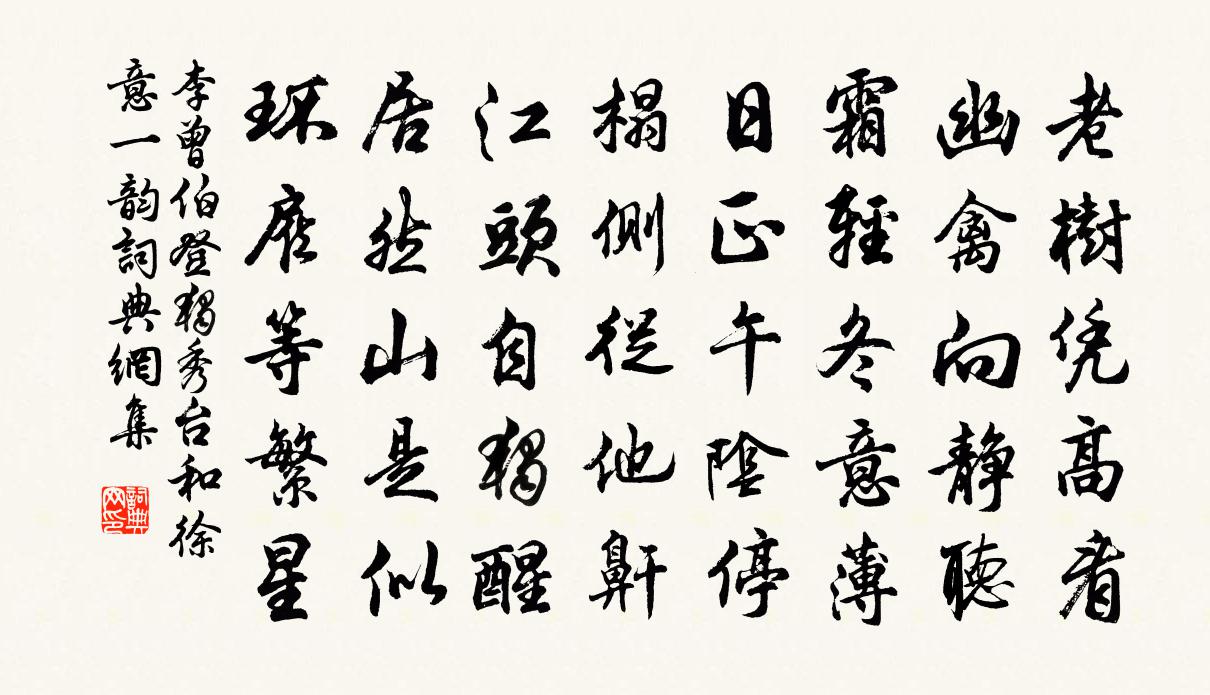 老樹凭高看
幽禽向静聽
霜輕冬意薄
日正午陰停
榻側從他鼾
江頭自獨醒
居然山是似
環庭等繁星
李曾伯登獨秀台和徐
意一韵詞典網集
詞典网印